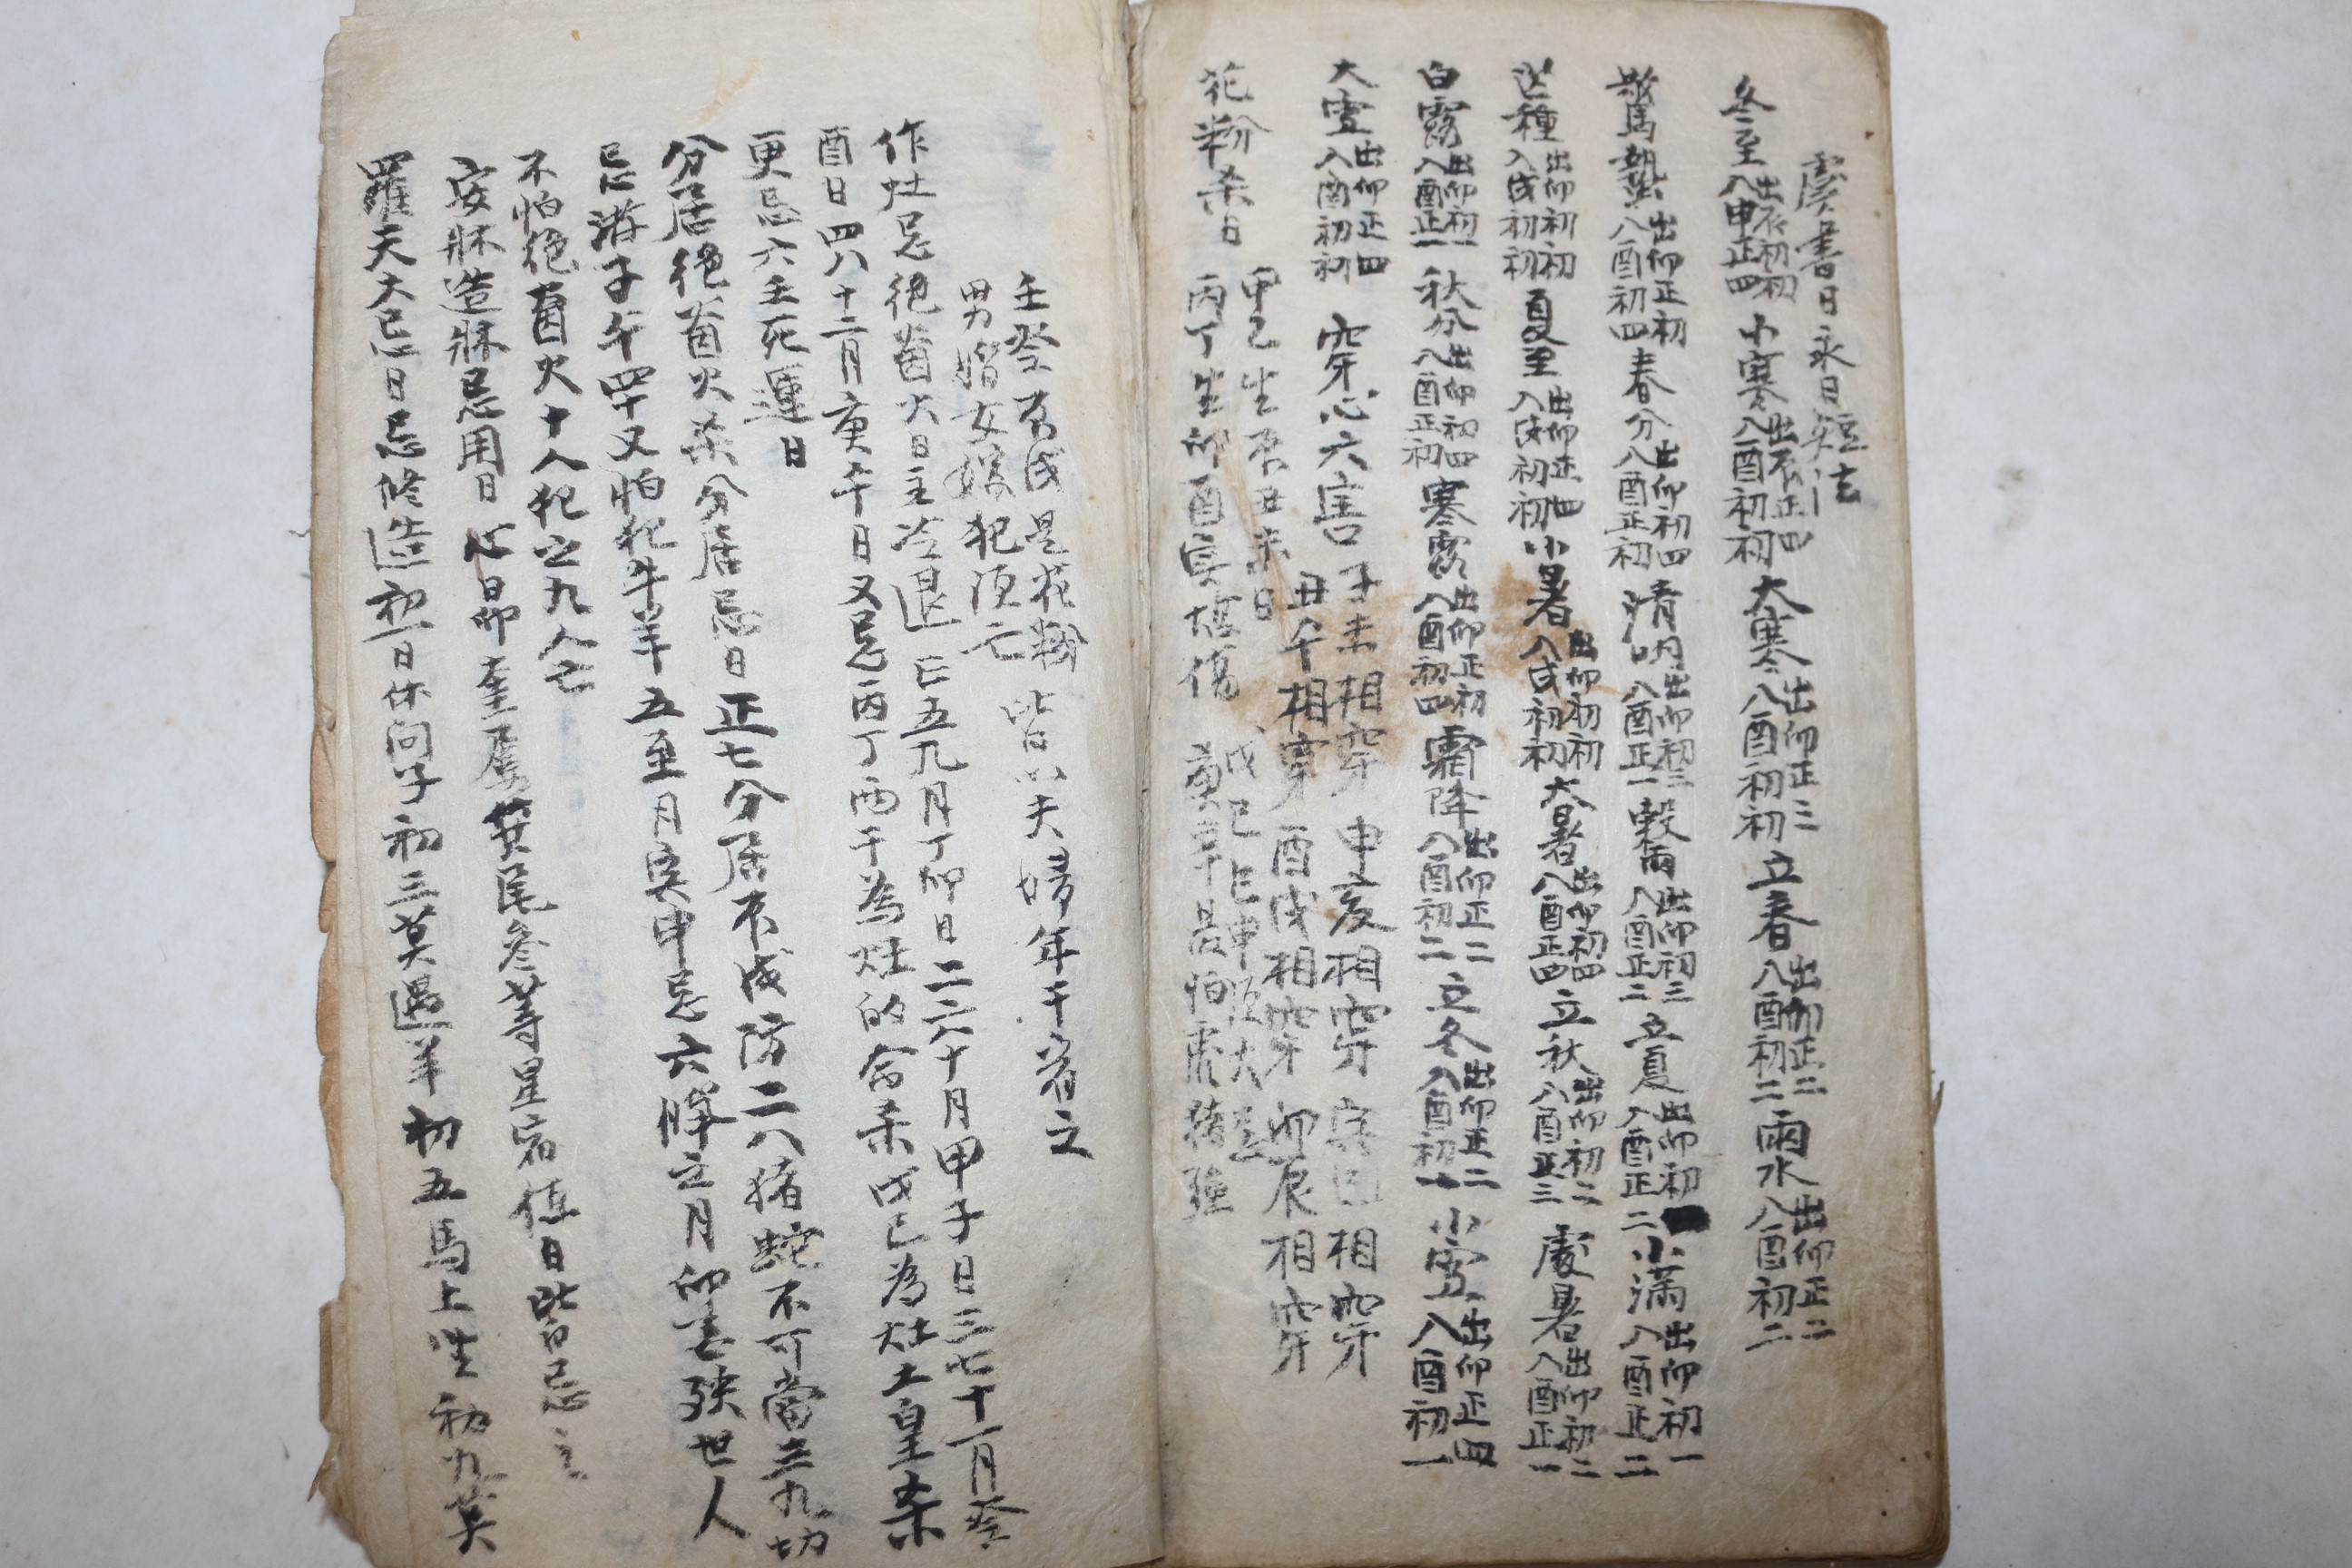 虞書日永日短法
冬至出辰初初入申正四小寒出辰正四入酉初初大寒出卯正三入酉初初立春出卯正二入酉初二雨水出卯正二入酉初二
驚蟄出卯正初入酉初四春分出卯初四入酉正初清明出卯初三入酉正一穀雨出卯初三入酉正二立夏出卯初入酉正二小满出卯初一入酉正二
芒種出卯初初入戌初初夏至出卯正四入戌初初小暑出卯初初入戌初初大暑出卯初四入酉正四立秋出卯初二入酉正三處暑出卯初二入酉正一
白露出卯初一入酉正一秋分出卯初四入酉正初寒露出卯正初入酉初四霜降出卯正二入酉初二立冬出卯正二入酉初一小雪出卯正四入酉初一
大雪出卯正四入酉初初
穿心六害子未相穿申亥相穿寅巳相穿
丑午相穿酉戌相穿卯辰相穿
花粉杀日甲乙生辰丑未日戊己巳申大
丙丁生卯酉寅傷庚辛最怕虎猪强
壬癸戌是花粉皆以夫婦年干省之
男婚女嫁犯須亡
作灶忌绝茵火日主冷退正五九月丁卯日二六十月甲子日三七十一月癸
酉日四八十二月庚午日又忌丙丁两干為灶的命杀戊己為灶土皇杀
更忌六壬死運日
分居绝茵火杀分居忌日正七分居不成防二八猪蛇不可當三九切
忌游子午四十又怕犯牛羊五至月寅申忌六腊之月卯辰殃世人
不怕绝茵火十人犯之九人亡
安牀造牀忌用日心昴奎婁箕尾參等星宿值日皆忌之
羅天大忌日忌修造初一日休问子初三莫遇羊初五馬上坐初九莫